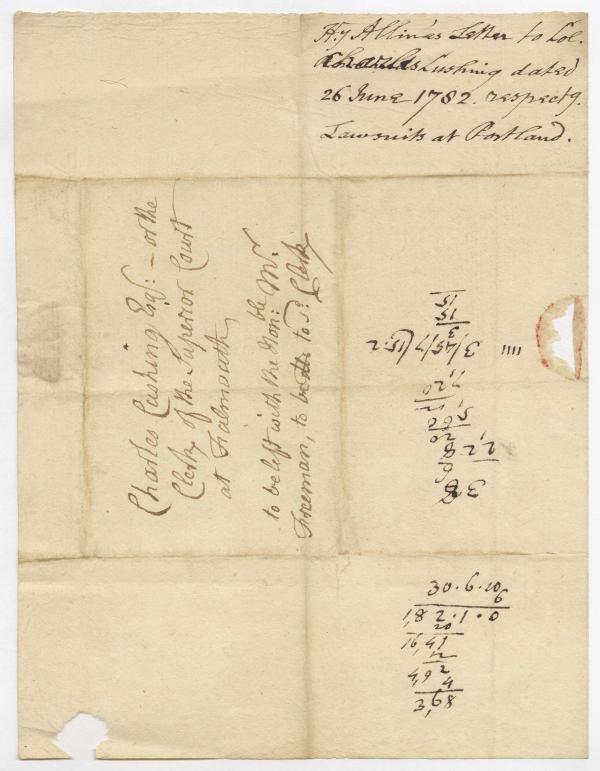 Hy Alline's Letter to Col.
Charles Cushing dated
26 June 1782. respectg.
Lawsuits at Portland.
Charles Cushing Esqr: – or the
Clerk of the Superior Court
at Falmouth
to be left with the Honble: Mr.
Freeman, to be to sd. Clerk
3/45/7/(15.2
3
15
15
30.6.10
6
1,82.1.0
20
16,41
12
4,92
4
3,68